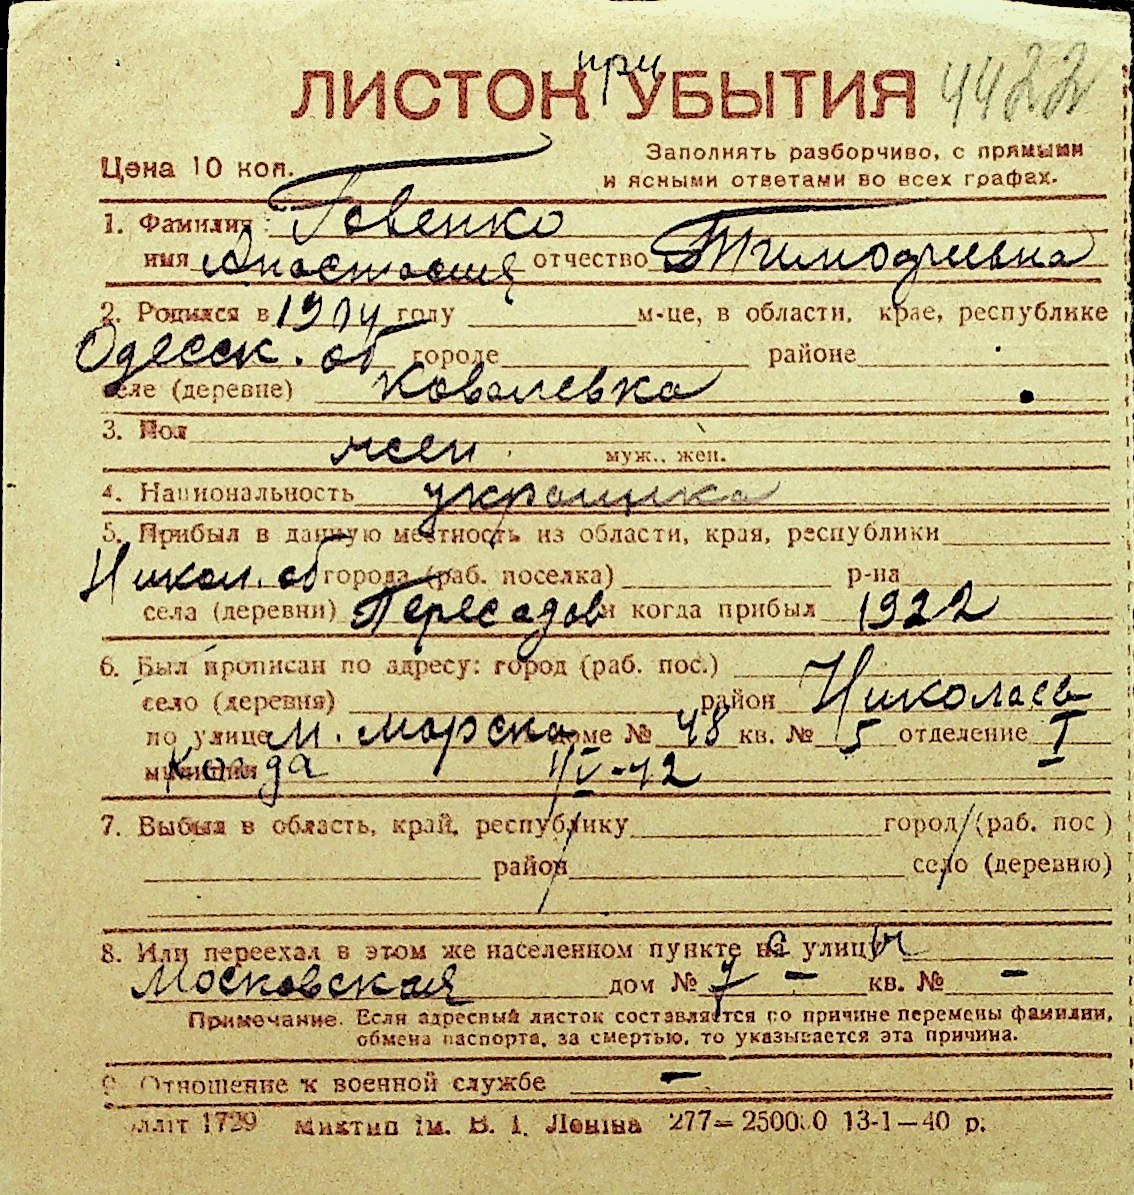 при
ЛИСТОК УБЫТИЯ 4422
Цена 10 коп.
Заполнять разборчиво, с прямыми
и ясными ответами во всех графах.
1. Фамилия Говенко
имя Анастасия отчество Тимофеевна
2. Родился в 1914 году м-це, в области, крае, республике
Одесск. об городе районе
селе (деревне) Ковалевка
3. Пол жен муж., жен.
4. Национальность украинка
5. Прибыл в данную местность из области, края, республики
Никол. об города (раб. поселка) р-на
села (деревни) Пересадов и когда прибыл 1922
6. Был прописан по адресу: город (раб. пос.)
село (деревня) район Николаев
по улице М. Морска доме № 48 кв. № 5 отделение I
милиции Когда 1/IV-42
7. Выбыл в область, край, республику город (раб. пос)
район село (деревню)
8. Или переехал в этом же населенном пункте с улицы
Московская дом № 7 - кв. № -
Примечание. Если адресный листок составляется по причине перемены фамилии,
обмена паспорта, за смертью, то указывается эта причина.
9. Отношение к военной службе -
1729 Миктип ім. В. І. Леніна 277—250000 13-1—40 р.